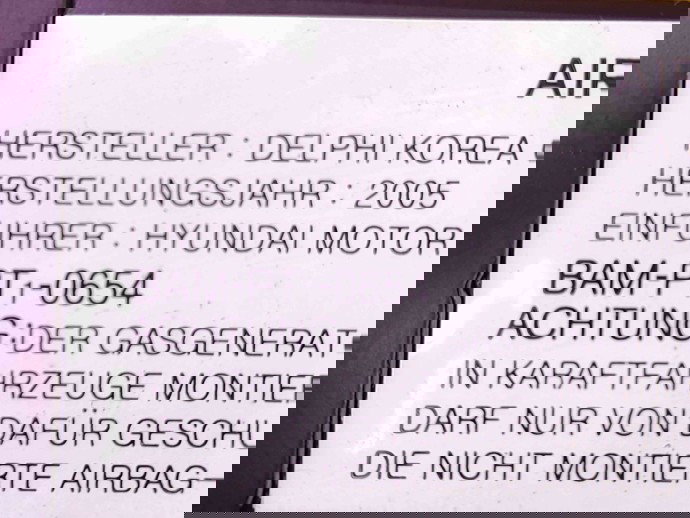 AIR
HERSTELLER : DELPHI KOREA
HERSTELLUNGSJAHR : 2005
EINFUHRER : HYUNDAI MOTOR
BAM-PT1-0654
ACHTUNG!DER GASGENERAT
IN KARAFTFAHRZEUGE MONTIER
DARF NUR VON DAFÜR GESCHU
DIE NICHT MONTIERTE AIRBAG-